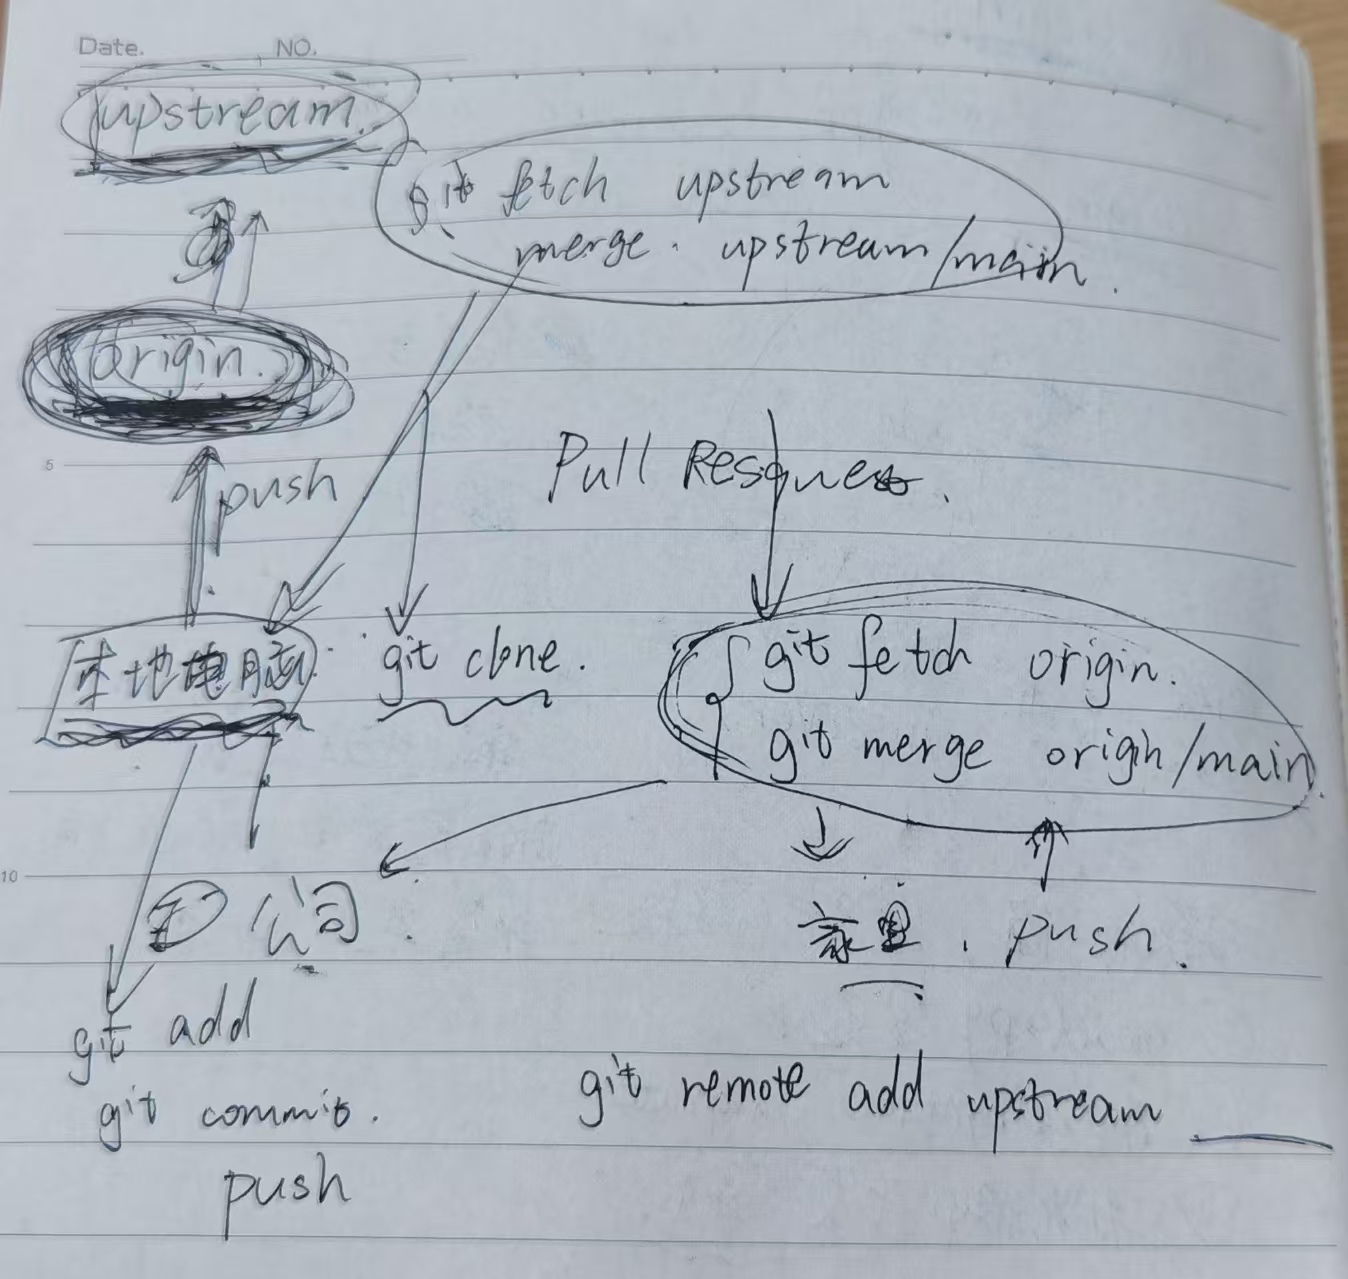 Date. NO.
upstream.
git fetch upstream
merge. upstream/main.
origin.
push
Pull Resquest.
本地电脑. git clone.
git fetch origin.
git merge origin/main.
公司.
家里. push.
git add
git commit.
push
git remote add upstream
5
10